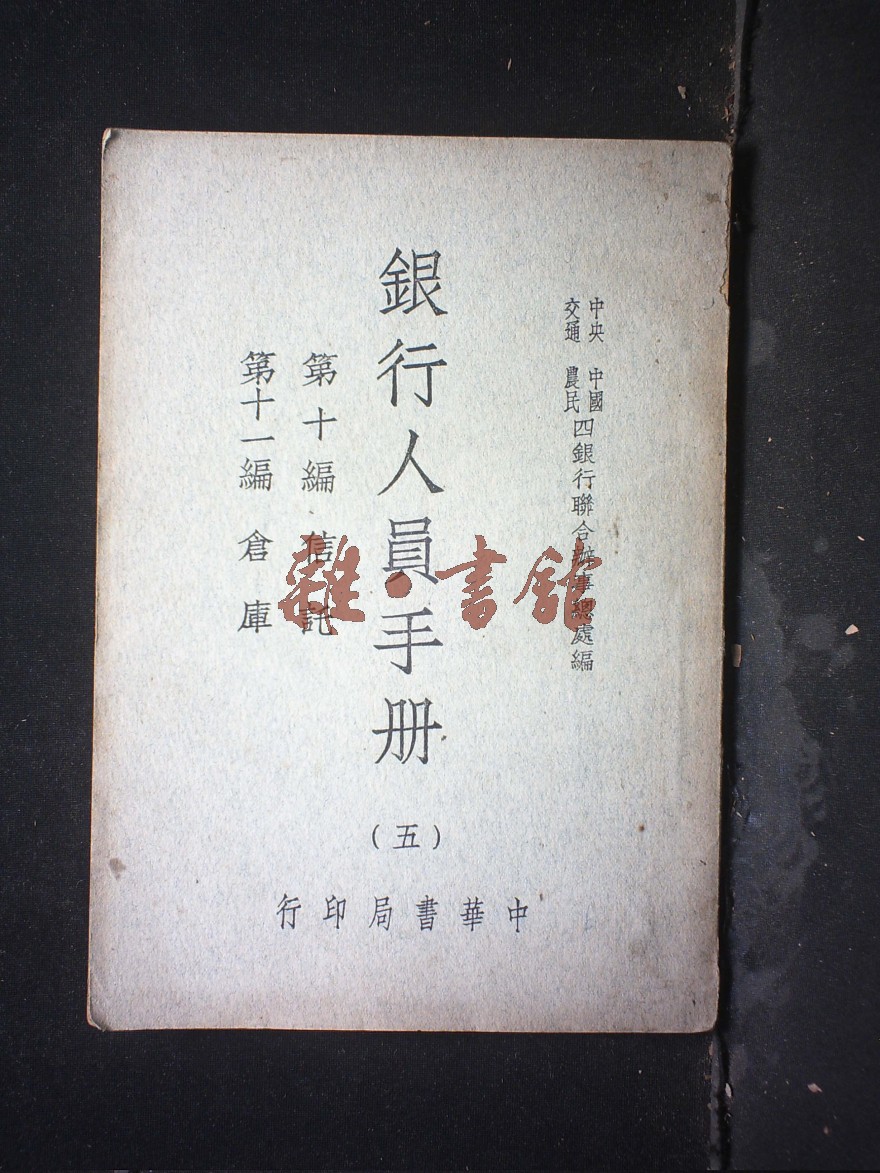 中央 中國
交通 農民
四銀行聯合辦事總處編
銀行人員手册
（五）
第十編 信託
第十一編 倉庫
中華書局印行
雜·書館